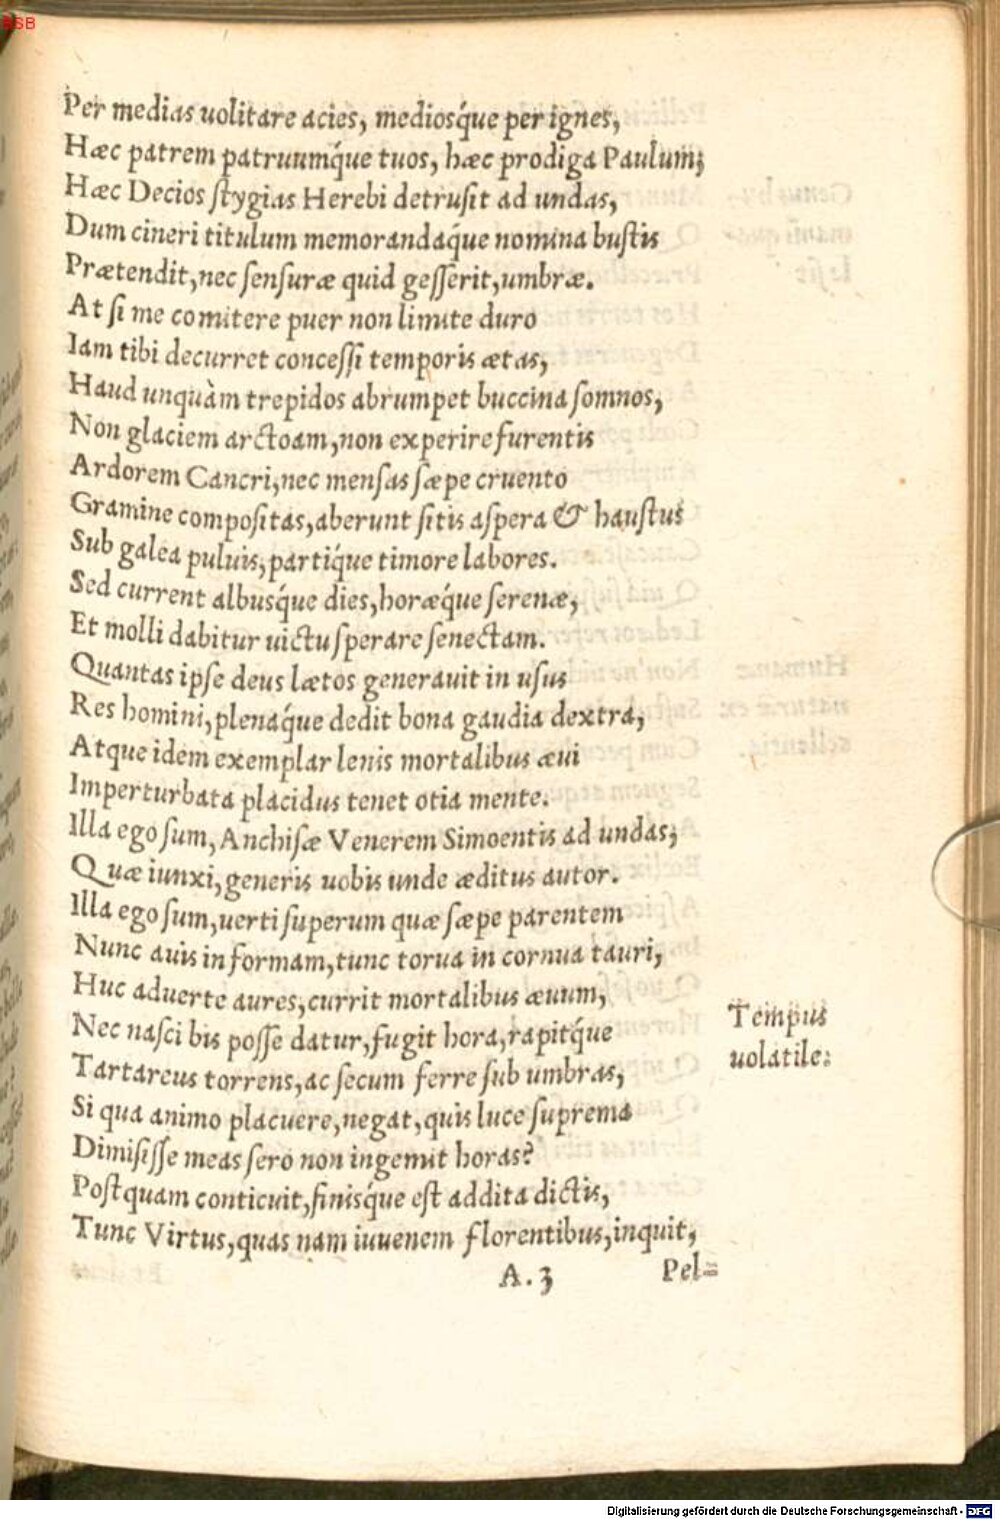 Per medias uolitare acies, mediosq́ue per ignes,
Hæc patrem patruumq́ue tuos, hæc prodiga Paulum;
Hæc Decios stygias Herebi detrusit ad undas,
Dum cineri titulum memorandaq́ue nomina bustis
Prætendit, nec sensuræ quid gesserit, umbræ.
At si me comitere puer non limite duro
Iam tibi decurret concessi temporis ætas,
Haud unquàm trepidos abrumpet buccina somnos,
Non glaciem arctoam, non experire furentis
Ardorem Cancri, nec mensas sæpe cruento
Gramine compositas, aberunt sitis aspera & haustus
Sub galea puluis, partiq́ue timore labores.
Sed current albusq́ue dies, horæq́ue serenæ,
Et molli dabitur uictu sperare senectam.
Quantas ipse deus lætos generauit in usus
Res homini, plenaq́ue dedit bona gaudia dextra,
Atque idem exemplar lenis mortalibus æui
Imperturbata placidus tenet otia mente.
Illa ego sum, Anchisæ Venerem Simoentis ad undas;
Quæ iunxi, generis uobis unde æditus autor.
Illa ego sum, uerti superum quæ sæpe parentem
Nunc auis in formam, tunc torua in cornua tauri,
Huc aduerte aures, currit mortalibus æuum,
Nec nasci bis posse datur, fugit hora, rapitq́ue
Tartareus torrens, ac secum ferre sub umbras,
Si qua animo placuere, negat, quis luce suprema
Dimisisse meas sero non ingemit horas?
Postquam conticuit, finisq́ue est addita dictis,
Tunc Virtus, quas nam iuuenem florentibus, inquit,
A. 3 Pel=
Tempus
uolatile.
BSB
Digitalisierung gefördert durch die Deutsche Forschungsgemeinschaft - DFG